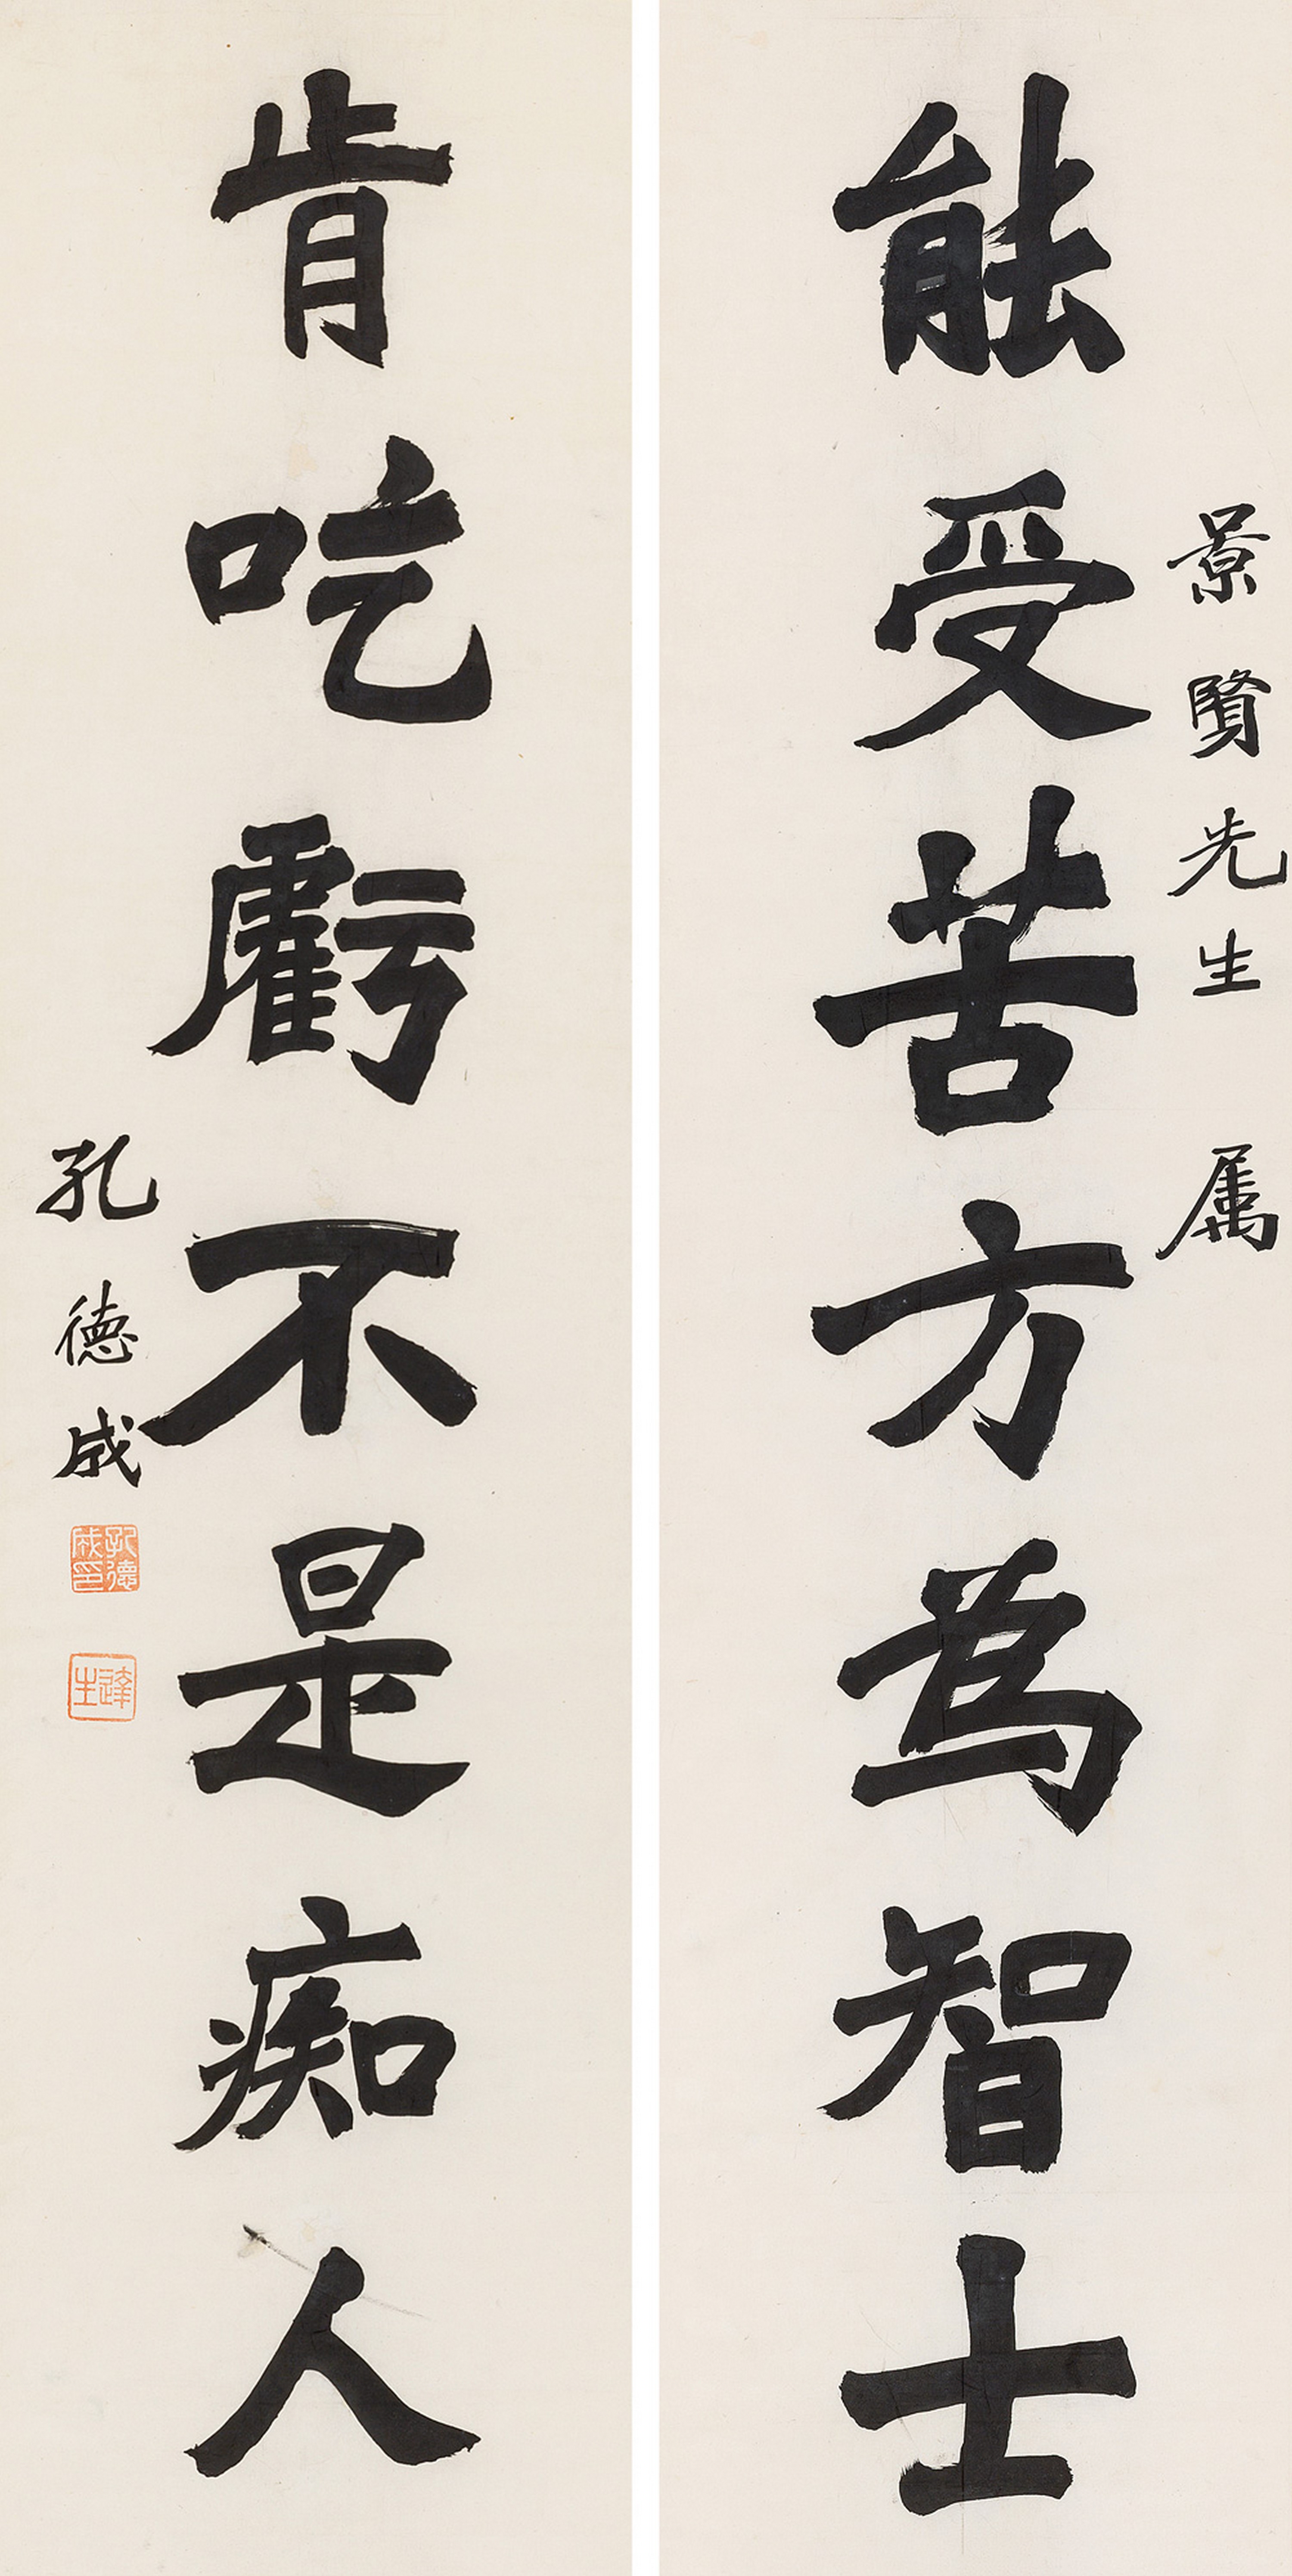 景賢先生 属
能受苦方為智士
肯吃虧不是痴人
孔德成
孔德成印
達生